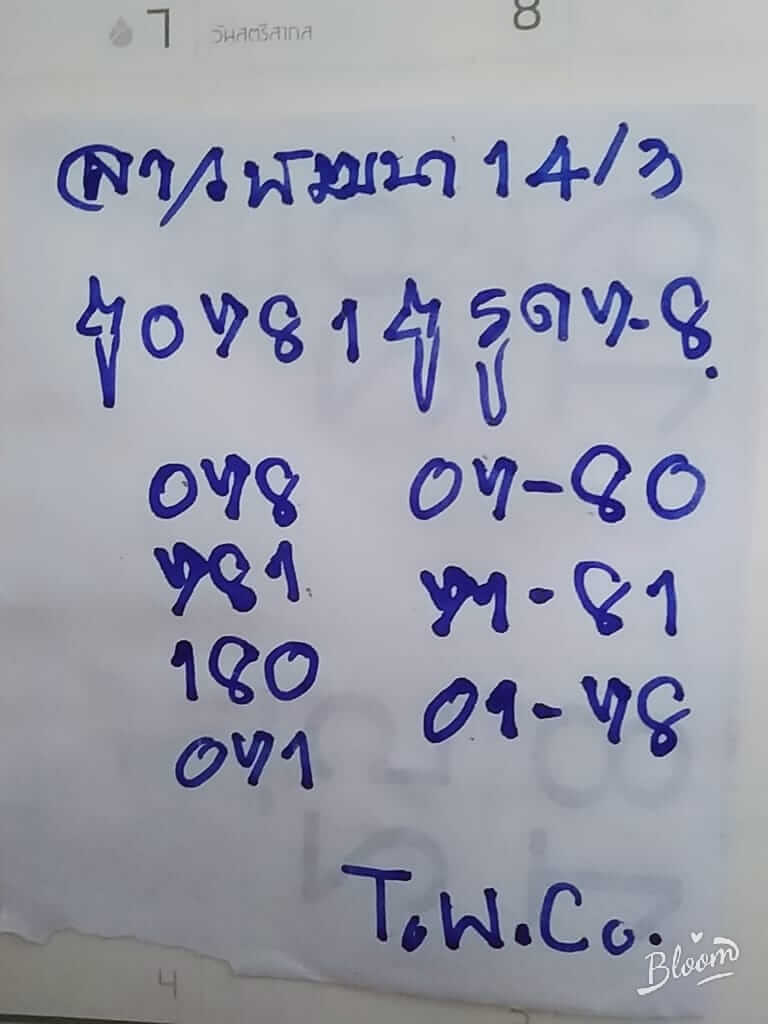 7 วันสตรีสากล 8
ลาวพัฒนา 14/3
0781 7-8.
078 07-80
781 71-81
180 01-78
071
T.W.Co.
Bloom
4